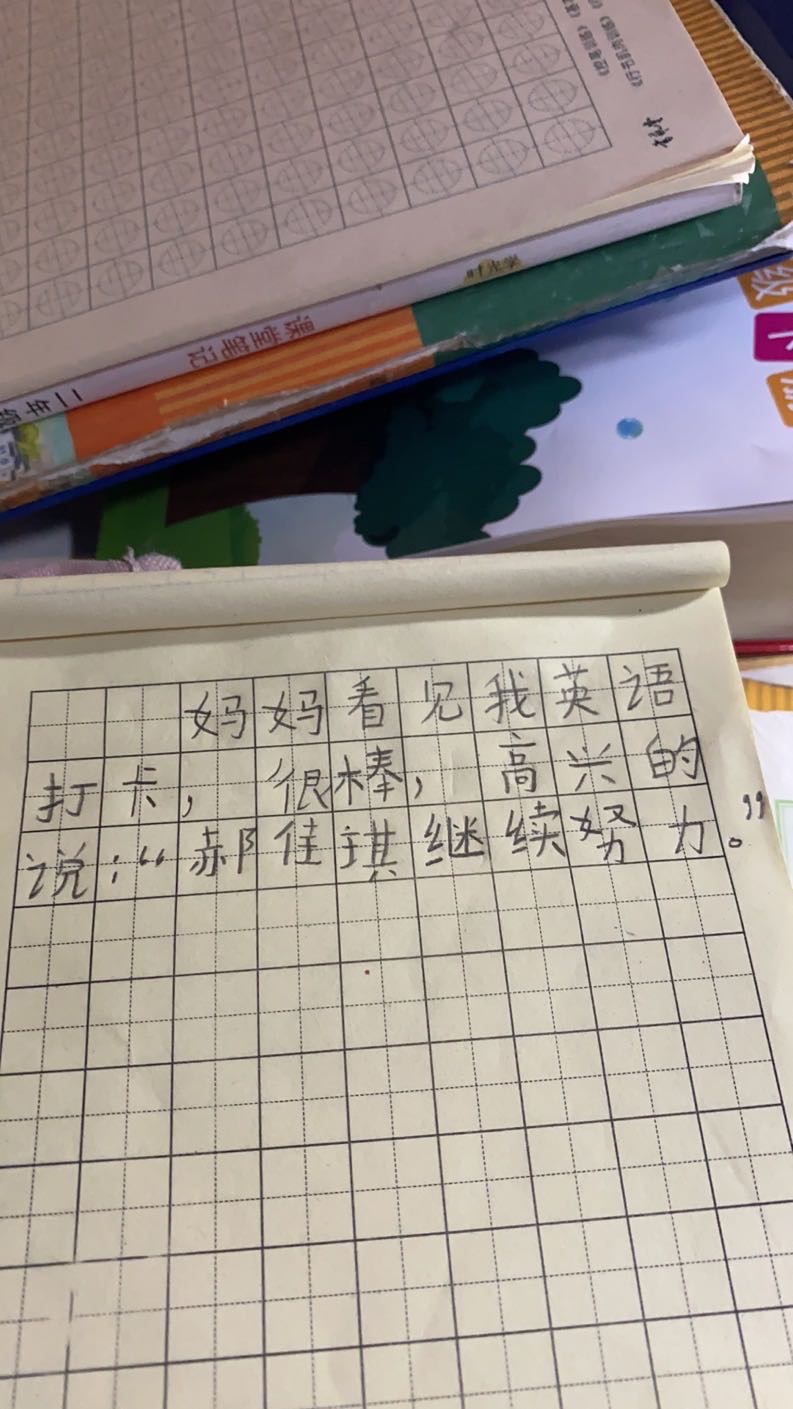 课堂笔记
二年级
妈妈看见我英语
打卡，很棒，高兴的
说：“郝佳琪继续努力。”